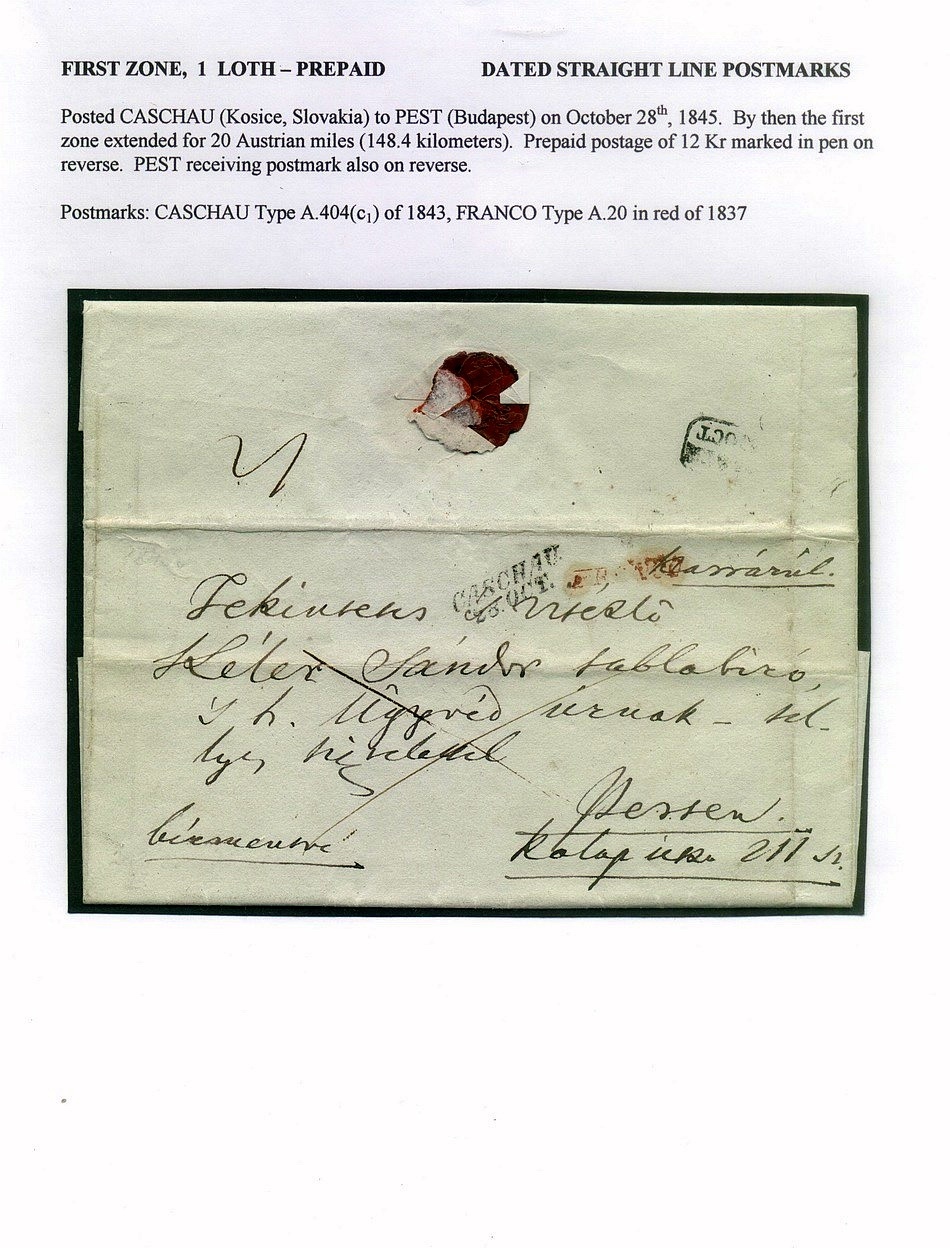 FIRST ZONE, 1 LOTH – PREPAID DATED STRAIGHT LINE POSTMARKS
Posted CASCHAU (Kosice, Slovakia) to PEST (Budapest) on October 28th, 1845. By then the first
zone extended for 20 Austrian miles (148.4 kilometers). Prepaid postage of 12 Kr marked in pen on
reverse. PEST receiving postmark also on reverse.
Postmarks: CASCHAU Type A.404(c1) of 1843, FRANCO Type A.20 in red of 1837
OCT
CASCHAU
28. OCT.
Kassárúl.
Tekintetes
Kéler Sándor táblabíró,
s h. Ügyvéd úrnak – tel-
lyes tisztelettel
Pesten.
bérmentve
Kalap 211 sz.